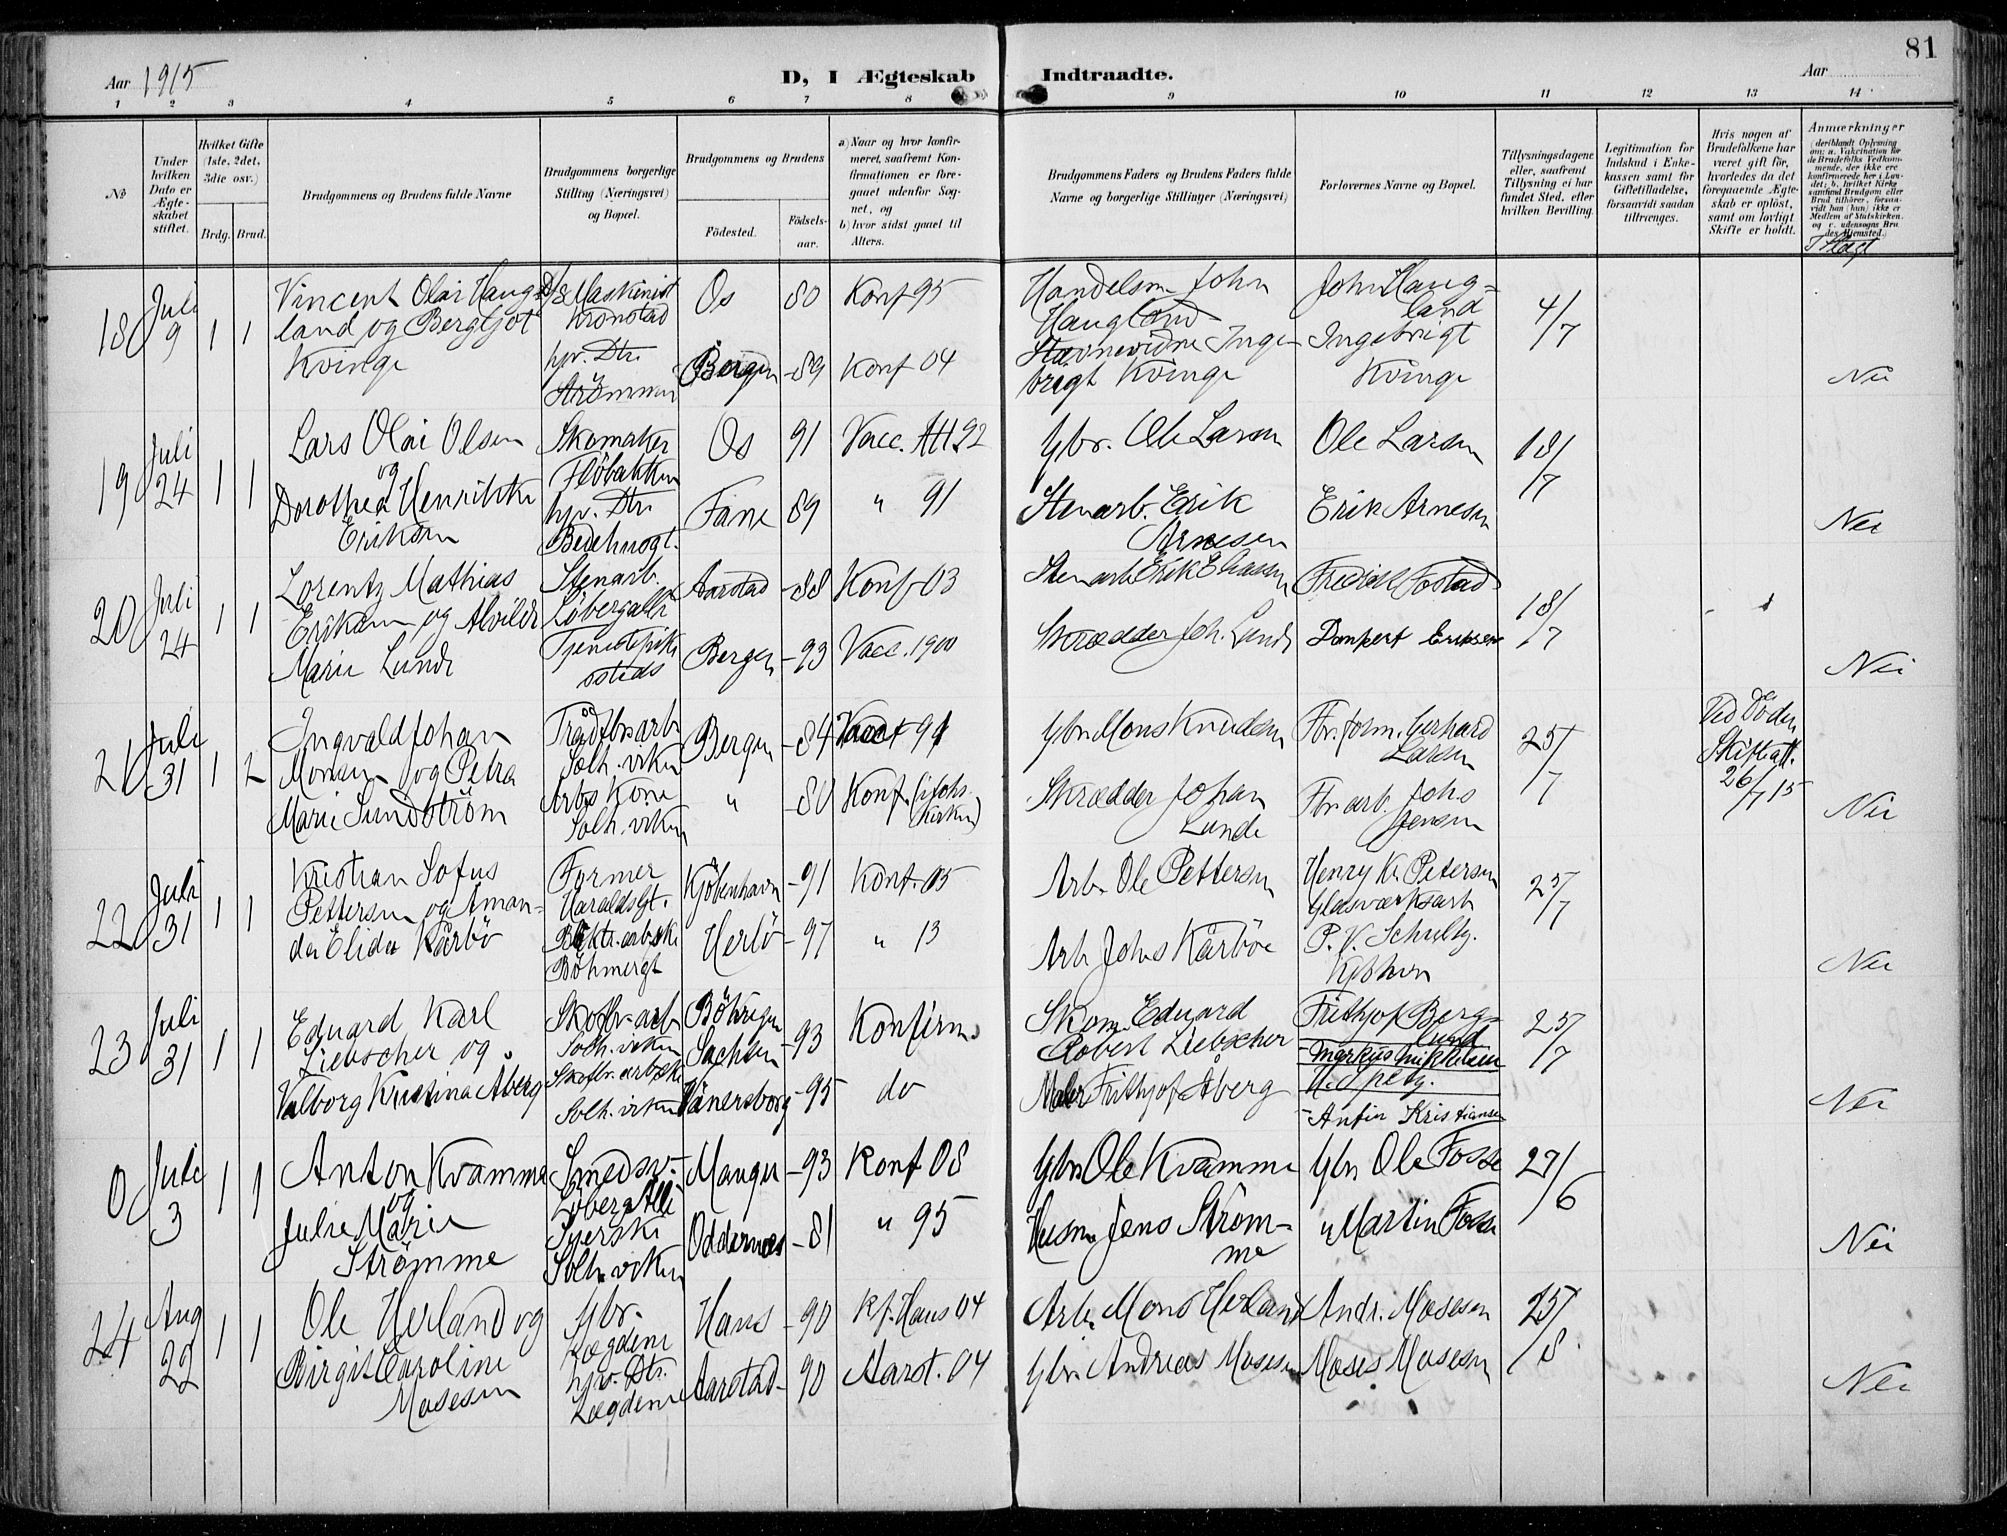 81
Aar 1915
D, I Ægteskab Indtraadte.
Aar
1 2 3 4 5 6 7 8 9 10 11 12 13 14
No
Under hvilken Dato er Ægteskabet stiftet.
Hvilket Gifte (1ste, 2det, 3die osv.)
Brdg. Brud.
Brudgommens og Brudens fulde Navne
Brudgommens borgerlige Stilling (Næringsvei) og Bopæl.
Brudgommens og Brudens
Födested.
Födselsaar.
a) Naar og hvor konfirmeret, saafremt Konfirmationen er foregaaet udenför Sognet, og
b) hvor sidst gaaet til Alters.
Brudgommens Faders og Brudens Faders fulde Navne og borgerlige Stillinger (Næringsvei)
Forlovernes Navne og Bopæl.
Tillysningsdagene eller, saafremt Tillysning ei har fundet Sted, efter hvilken Bevilling.
Legitimation for Indskud i Enkekassen samt for Giftetilladelse, forsaavidt saadan tiltrænges.
Hvis nogen af Brudefolkene har været gift för, hvorledes da det foregaaende Ægteskab er oplöst, samt om lovligt Skifte er holdt.
Anmærkninger (deriblandt Oplysning om: a. Vakcination for de Brudefolks Vedkommende, der ikke ere konfirmerede her i Landet; b. hvilket Kirkesamfund Brudgom eller Brud tilhörer, forsaavidt han (hun) ikke er Medlem af Statskirken, og c. udensogns Brudes Hjemsted.)
18 Juli 9 1 1
Vincent Olai Haugland og Bergljot Kvinge
Maskinist Kronstad
hjv. Dtr. Strömmen
Os 80 Konf 95
Bergen -89 Konf 04
Handelsm John Haugland
Stevnevidne Ingebrigt Kvinge
John Haugland
Ingebrigt Kvinge
4/7
Nei
19 Juli 24 1 1
Lars Olai Olsen og
Dorothea Henrikke Eriksen
Skomaker Flöbakken
hjv. Dtr.
Os 91 Vacc. Att 92
Fane 89 " 91
Gbr. Ole Larsen
Stenarb. Erik Arnesen
Ole Larsen
Erik Arnesen
18/7
Nei
20 Juli 24 1 1
Lorentz Mathias Eriksen og Alvilde Marie Lunde
Stenarb. Löbergsalle
Tjenestepike ssteds
Aarstad -88 Konf 03
Bergen -93 Vacc. 1900
Stenarb Erik Eliassen
Skrædder Joh. Lunde
Fredrik Fostad
Eriksen
18/7
Nei
21 Juli 31 1 2
Ingvald Johan Monsen og Petra Marie Sundström
Trådfbr.arb Solh. viken
Arbs Kone Solh. viken
Bergen -84 Vacc 91
" -80 Konf. (i Johs. Kirken)
Gbr Mons Knudsen
Skrædder Johan Lunde
Fbr. form. Gerhard Larsen
Fbr arb. Johs Jensen
25/7
Ved Döden Skifteatt. 26/7 15
Nei
22 Juli 31 1 1
Kristian Sofus Pettersen og Amanda Elida Kårbö
Former Haraldsgt.
Böhmergt
Kjöbenhavn -91 Konf. 05
Herlö -97 " 13
Arb. Ole Pettersen
Arb Johs Kårböe
Henry K. Petersen Glasværksarb
P. V. Schultz. Kjöbhvn
25/7
Nei
23 Juli 31 1 1
Eduard Karl Liebscher og
Valborg Kristina Åberg
Skofbr-arb Solh. viken
Skofbr.arbske Solh. viken
Böhrigen Sachsen -93 Konfirm.
Vänersborg -95 do
Skom Eduard Robert Liebscher
Maler Frithjof Åberg
Frithjof Berglund
Markus Mikkelsen
Anton Kristiansen
25/7
Nei
0 Juli 3 1 1
Anton Kvamme og
Julie Marie Strömme
Smedsv. Löbergs Alle
Syerske Solh. viken
Manger -93 Konf 08
Oddernes -81 " 95
Gbr Ole Kvamme
Husm Jens Strömme
Gbr Ole Fosse
" Martin Fosse
27/6
Nei
24 Aug 22 1 1
Ole Herland og
Birgit Caroline Mosesen
Gbr. Lægdene
hjv. Dtr. Lægdene
Haus -90 Kf. Haus 04
Aarstad -90 Aarst. 04
Arb. Mons Herland
Gbr. Andreas Mosesen
Andr. Mosesen
Moses Mosesen
25/8
Nei